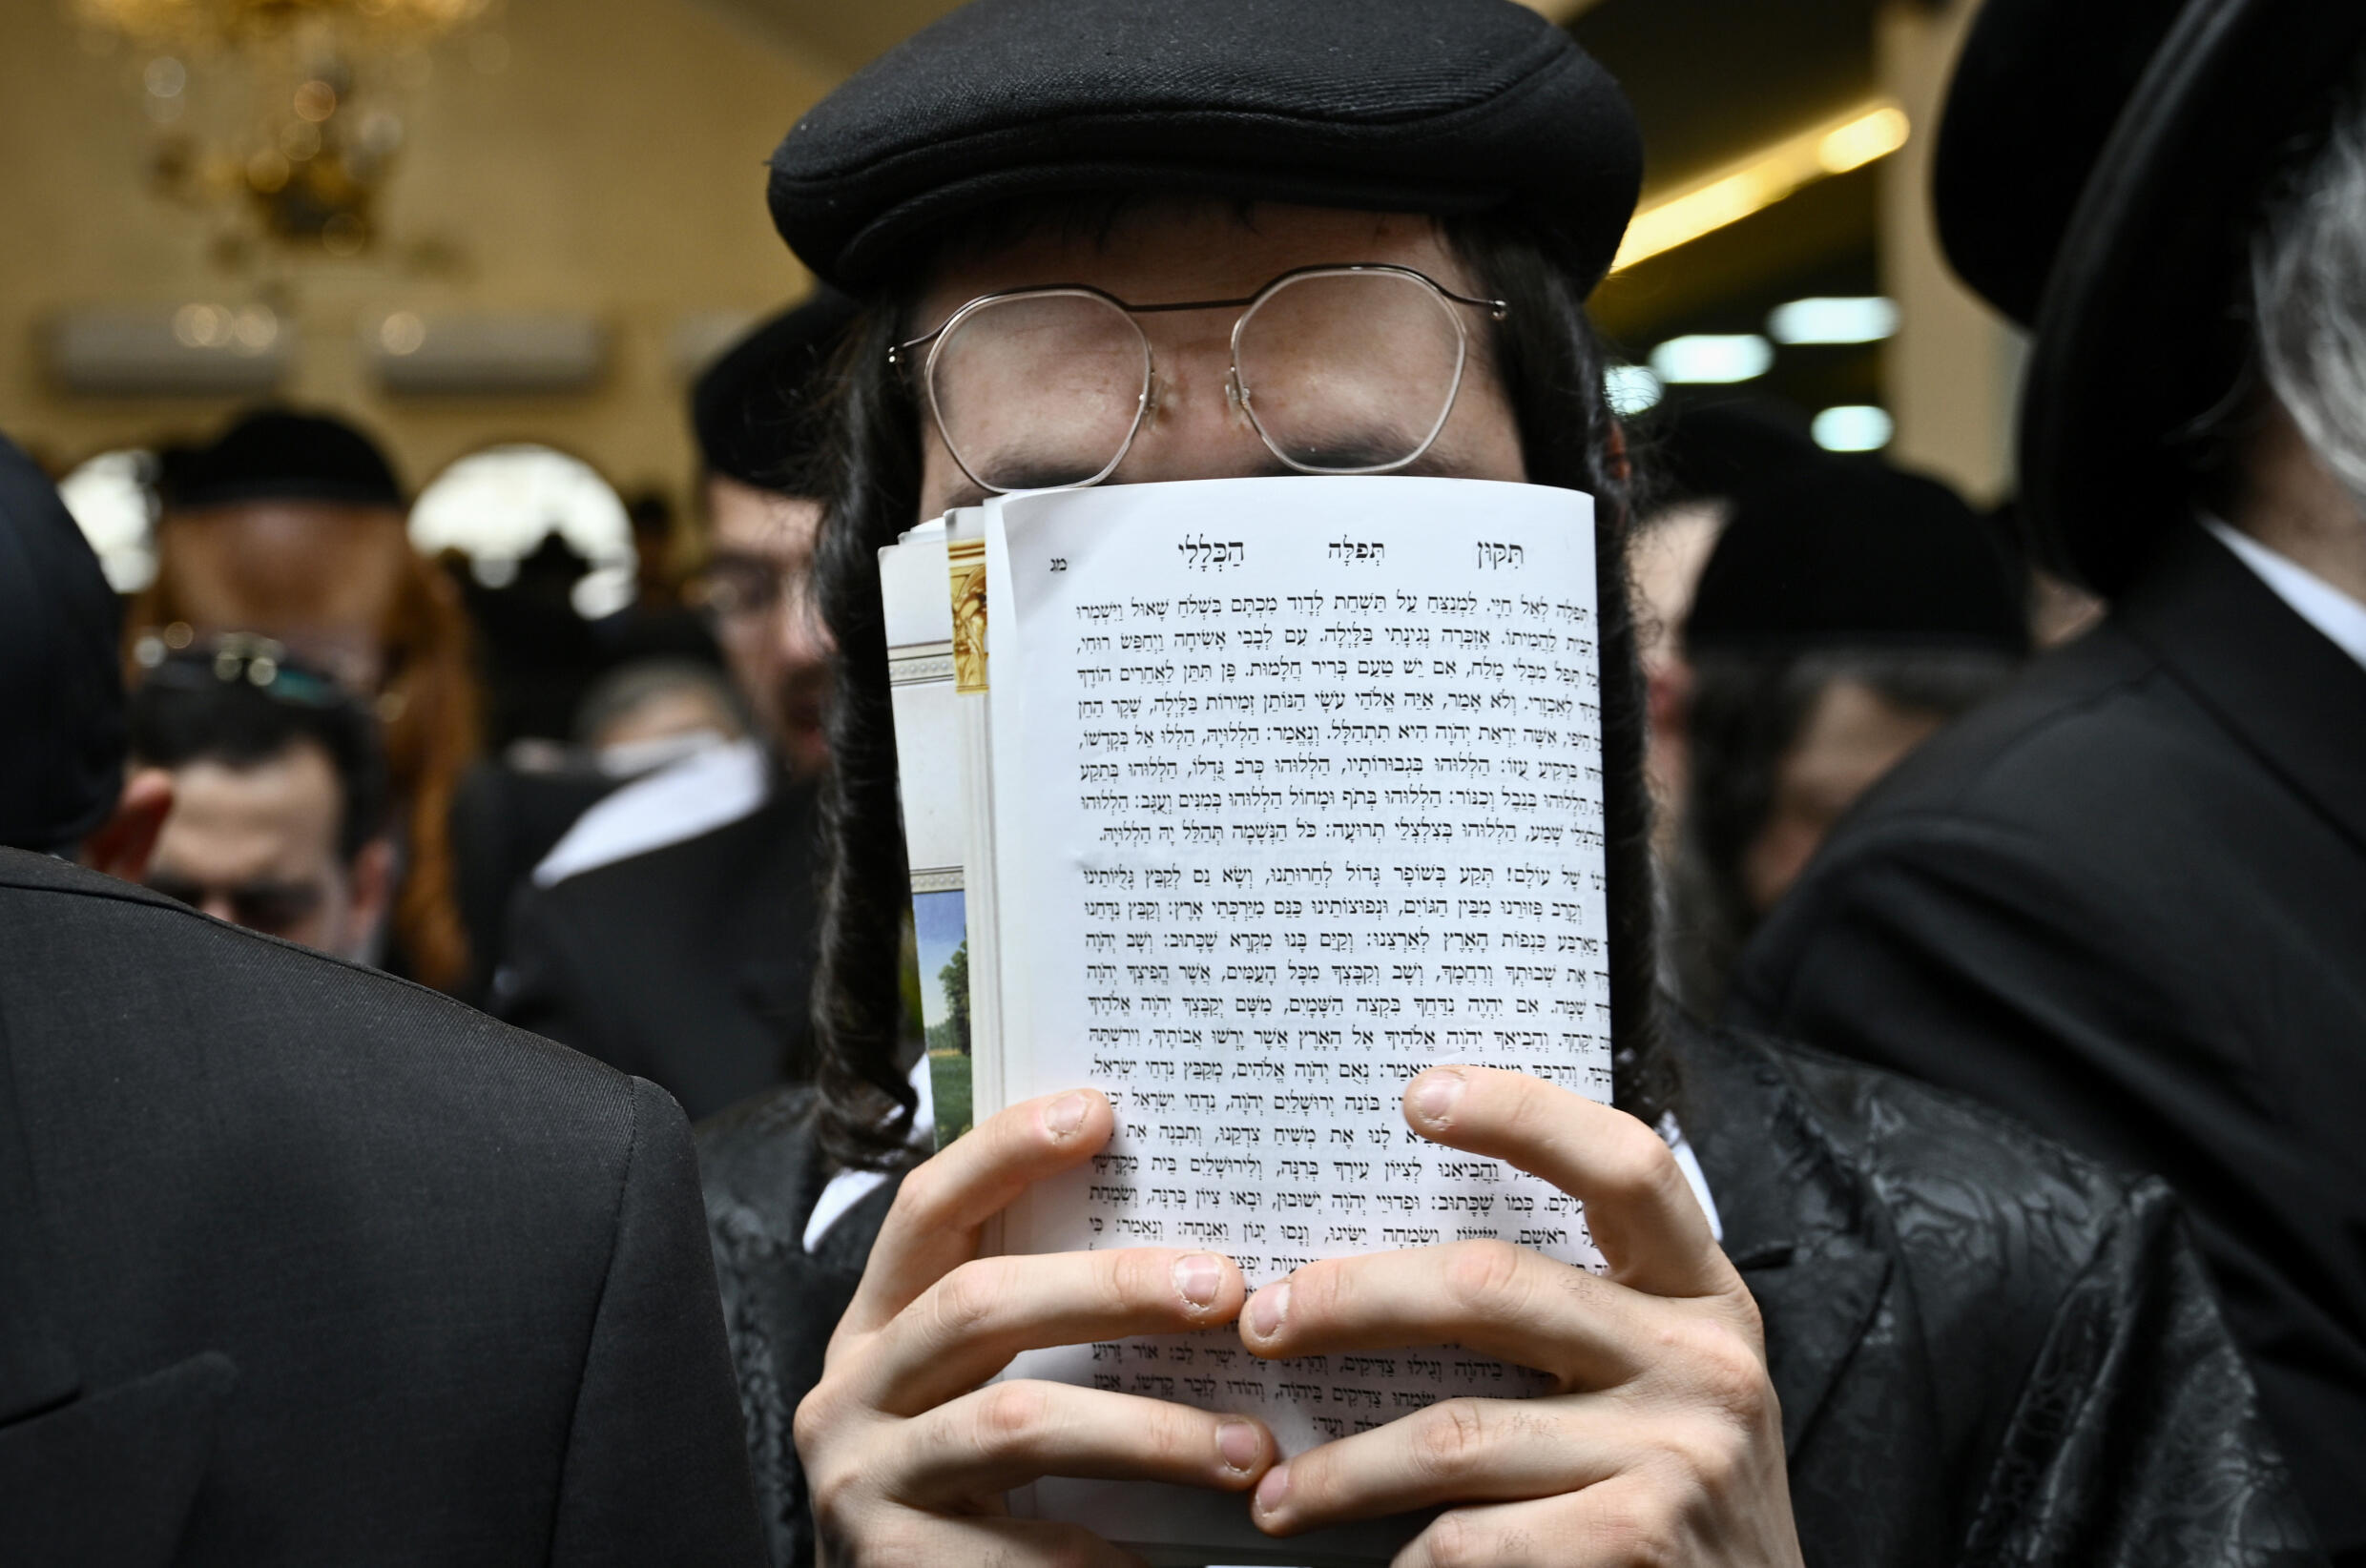 תִּקּוּן תְּפִלָּה הַכְּלָלִי מג
תְּפִלָּה לְאֵל חַיָּי. לַמְנַצֵּחַ עַל תַּשְׁחֵת לְדָוִד מִכְתָּם בִּשְׁלֹחַ שָׁאוּל וַיִּשְׁמְרוּ
הַבַּיִת לַהֲמִיתוֹ. אֶזְכְּרָה נְגִינָתִי בַּלָּיְלָה. עִם לְבָבִי אָשִׂיחָה וַיְחַפֵּשׂ רוּחִי,
תָּפֵל מִבְּלִי מֶלַח, אִם יֶשׁ טַעַם בְּרִיר חַלָּמוּת. פֶּן תִּתֵּן לַאֲחֵרִים הוֹדֶךָ
לְאַכְזָרִי. וְלֹא אָמַר, אַיֵּה אֱלוֹהַּ עֹשָׂי הַנּוֹתֵן זְמִירוֹת בַּלָּיְלָה, שֶׁקֶר הַחֵן
הַיֹּפִי, אִשָּׁה יִרְאַת יְהֹוָה הִיא תִתְהַלָּל. וְנֶאֱמַר: הַלְלוּיָהּ, הַלְלוּ אֵל בְּקָדְשׁוֹ,
בִּרְקִיעַ עֻזּוֹ: הַלְלוּהוּ בִּגְבוּרוֹתָיו, הַלְלוּהוּ כְּרֹב גֻּדְלוֹ, הַלְלוּהוּ בְּתֵקַע
הַלְלוּהוּ בְּנֵבֶל וְכִנּוֹר: הַלְלוּהוּ בְּתֹף וּמָחוֹל הַלְלוּהוּ בְּמִנִּים וְעֻגָב: הַלְלוּהוּ
שָׁמַע, הַלְלוּהוּ בְּצִלְצְלֵי תְרוּעָה: כֹּל הַנְּשָׁמָה תְּהַלֵּל יָהּ הַלְלוּיָהּ.
שֶׁל עוֹלָם! תְּקַע בְּשׁוֹפָר גָּדוֹל לְחֵרוּתֵנוּ, וְשָׂא נֵס לְקַבֵּץ גָּלֻיּוֹתֵינוּ
וְקָרֵב פְּזוּרֵנוּ מִבֵּין הַגּוֹיִם, וּנְפוּצוֹתֵינוּ כַּנֵּס מִיַּרְכְּתֵי אָרֶץ: וְקַבֵּץ נִדָּחֵנוּ
מֵאַרְבַּע כַּנְפוֹת הָאָרֶץ לְאַרְצֵנוּ: וְקַיֵּם בָּנוּ מִקְרָא שֶׁכָּתוּב: וְשָׁב יְהֹוָה
אֶת שְׁבוּתְךָ וְרִחֲמֶךָ, וְשָׁב וְקִבֶּצְךָ מִכָּל הָעַמִּים, אֲשֶׁר הֱפִיצְךָ יְהֹוָה
שָׁמָּה. אִם יִהְיֶה נִדַּחֲךָ בִּקְצֵה הַשָּׁמַיִם, מִשָּׁם יְקַבֶּצְךָ יְהֹוָה אֱלֹהֶיךָ
יִקָּחֶךָ. וֶהֱבִיאֲךָ יְהֹוָה אֱלֹהֶיךָ אֶל הָאָרֶץ אֲשֶׁר יָרְשׁוּ אֲבוֹתֶיךָ, וִירִשְׁתָּהּ
וְהִרְבְּךָ וְנֶאֱמַר: נְאֻם יְהֹוָה אֱלֹהִים, מְקַבֵּץ נִדְחֵי יִשְׂרָאֵל,
בּוֹנֵה יְרוּשָׁלַיִם יְהֹוָה, נִדְחֵי יִשְׂרָאֵל
לָנוּ אֶת מְשִׁיחַ צִדְקֵנוּ, וְתִבְנֶה אֶת
וַהֲבִיאֵנוּ לְצִיּוֹן עִירְךָ בְּרִנָּה, וְלִירוּשָׁלַיִם בֵּית מִקְדָּשְׁךָ
עוֹלָם. כְּמוֹ שֶׁכָּתוּב: וּפְדוּיֵי יְהֹוָה יְשׁוּבוּן, וּבָאוּ צִיּוֹן בְּרִנָּה, וְשִׂמְחַת
רֹאשָׁם, שָׂשׂוֹן וְשִׂמְחָה יַשִּׂיגוּ, וְנָסוּ יָגוֹן וַאֲנָחָה: וְנֶאֱמַר: כִּי
יִשְׁרֵי לֵב: אוֹר זָרֻעַ
בַּיהֹוָה וְגִילוּ צַדִּיקִים,
שִׂמְחוּ צַדִּיקִים בַּיהֹוָה, וְהוֹדוּ לְזֵכֶר קָדְשׁוֹ, אָמֵן
וָעֶד: